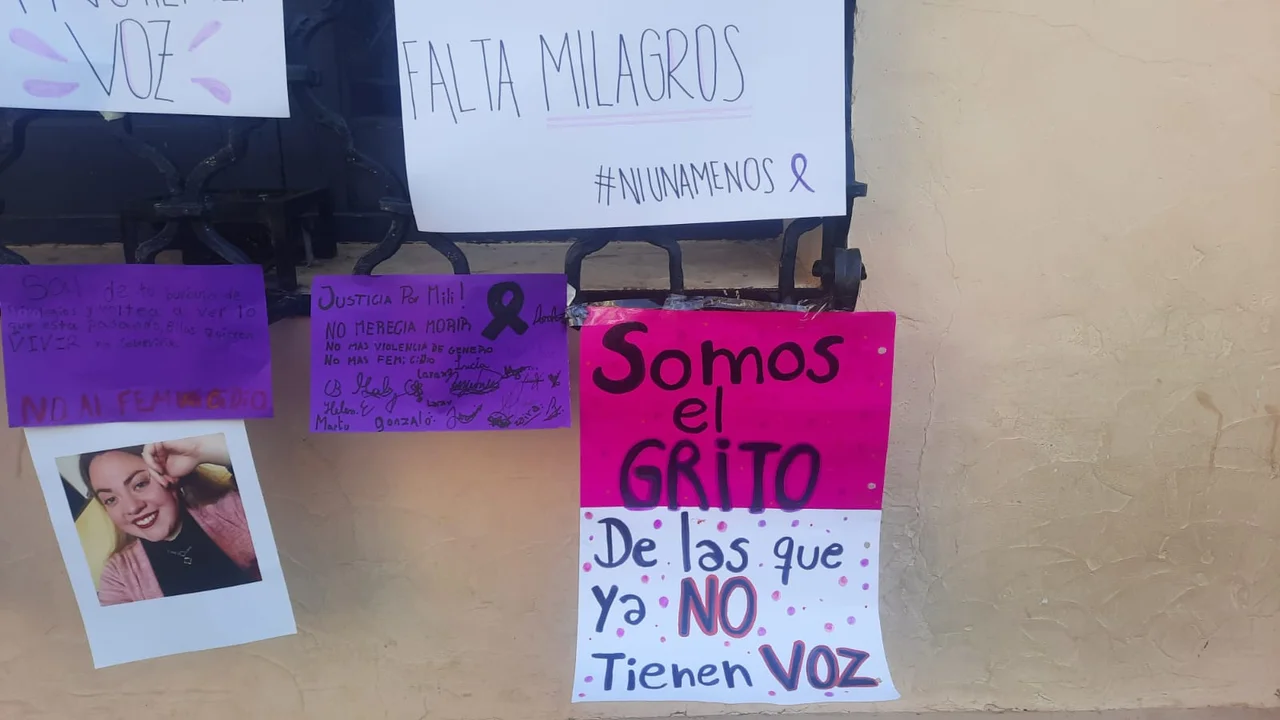 VOZ
FALTA MILAGROS
#NIUNAMENOS
SOY de tu
a ver lo
que esta pasando. Ellas quieren
VIVIR
NO AL FEMICIDIO
JUSTICIA POR Mili!
NO MERECIA MORIR
NO MAS VIOLENCIA DE GENERO
NO MAS FEMICIDIO
Lucia
Martu Gonzalo
SOMOS
el
GRITO
De las que
Ya NO
Tienen VOZ